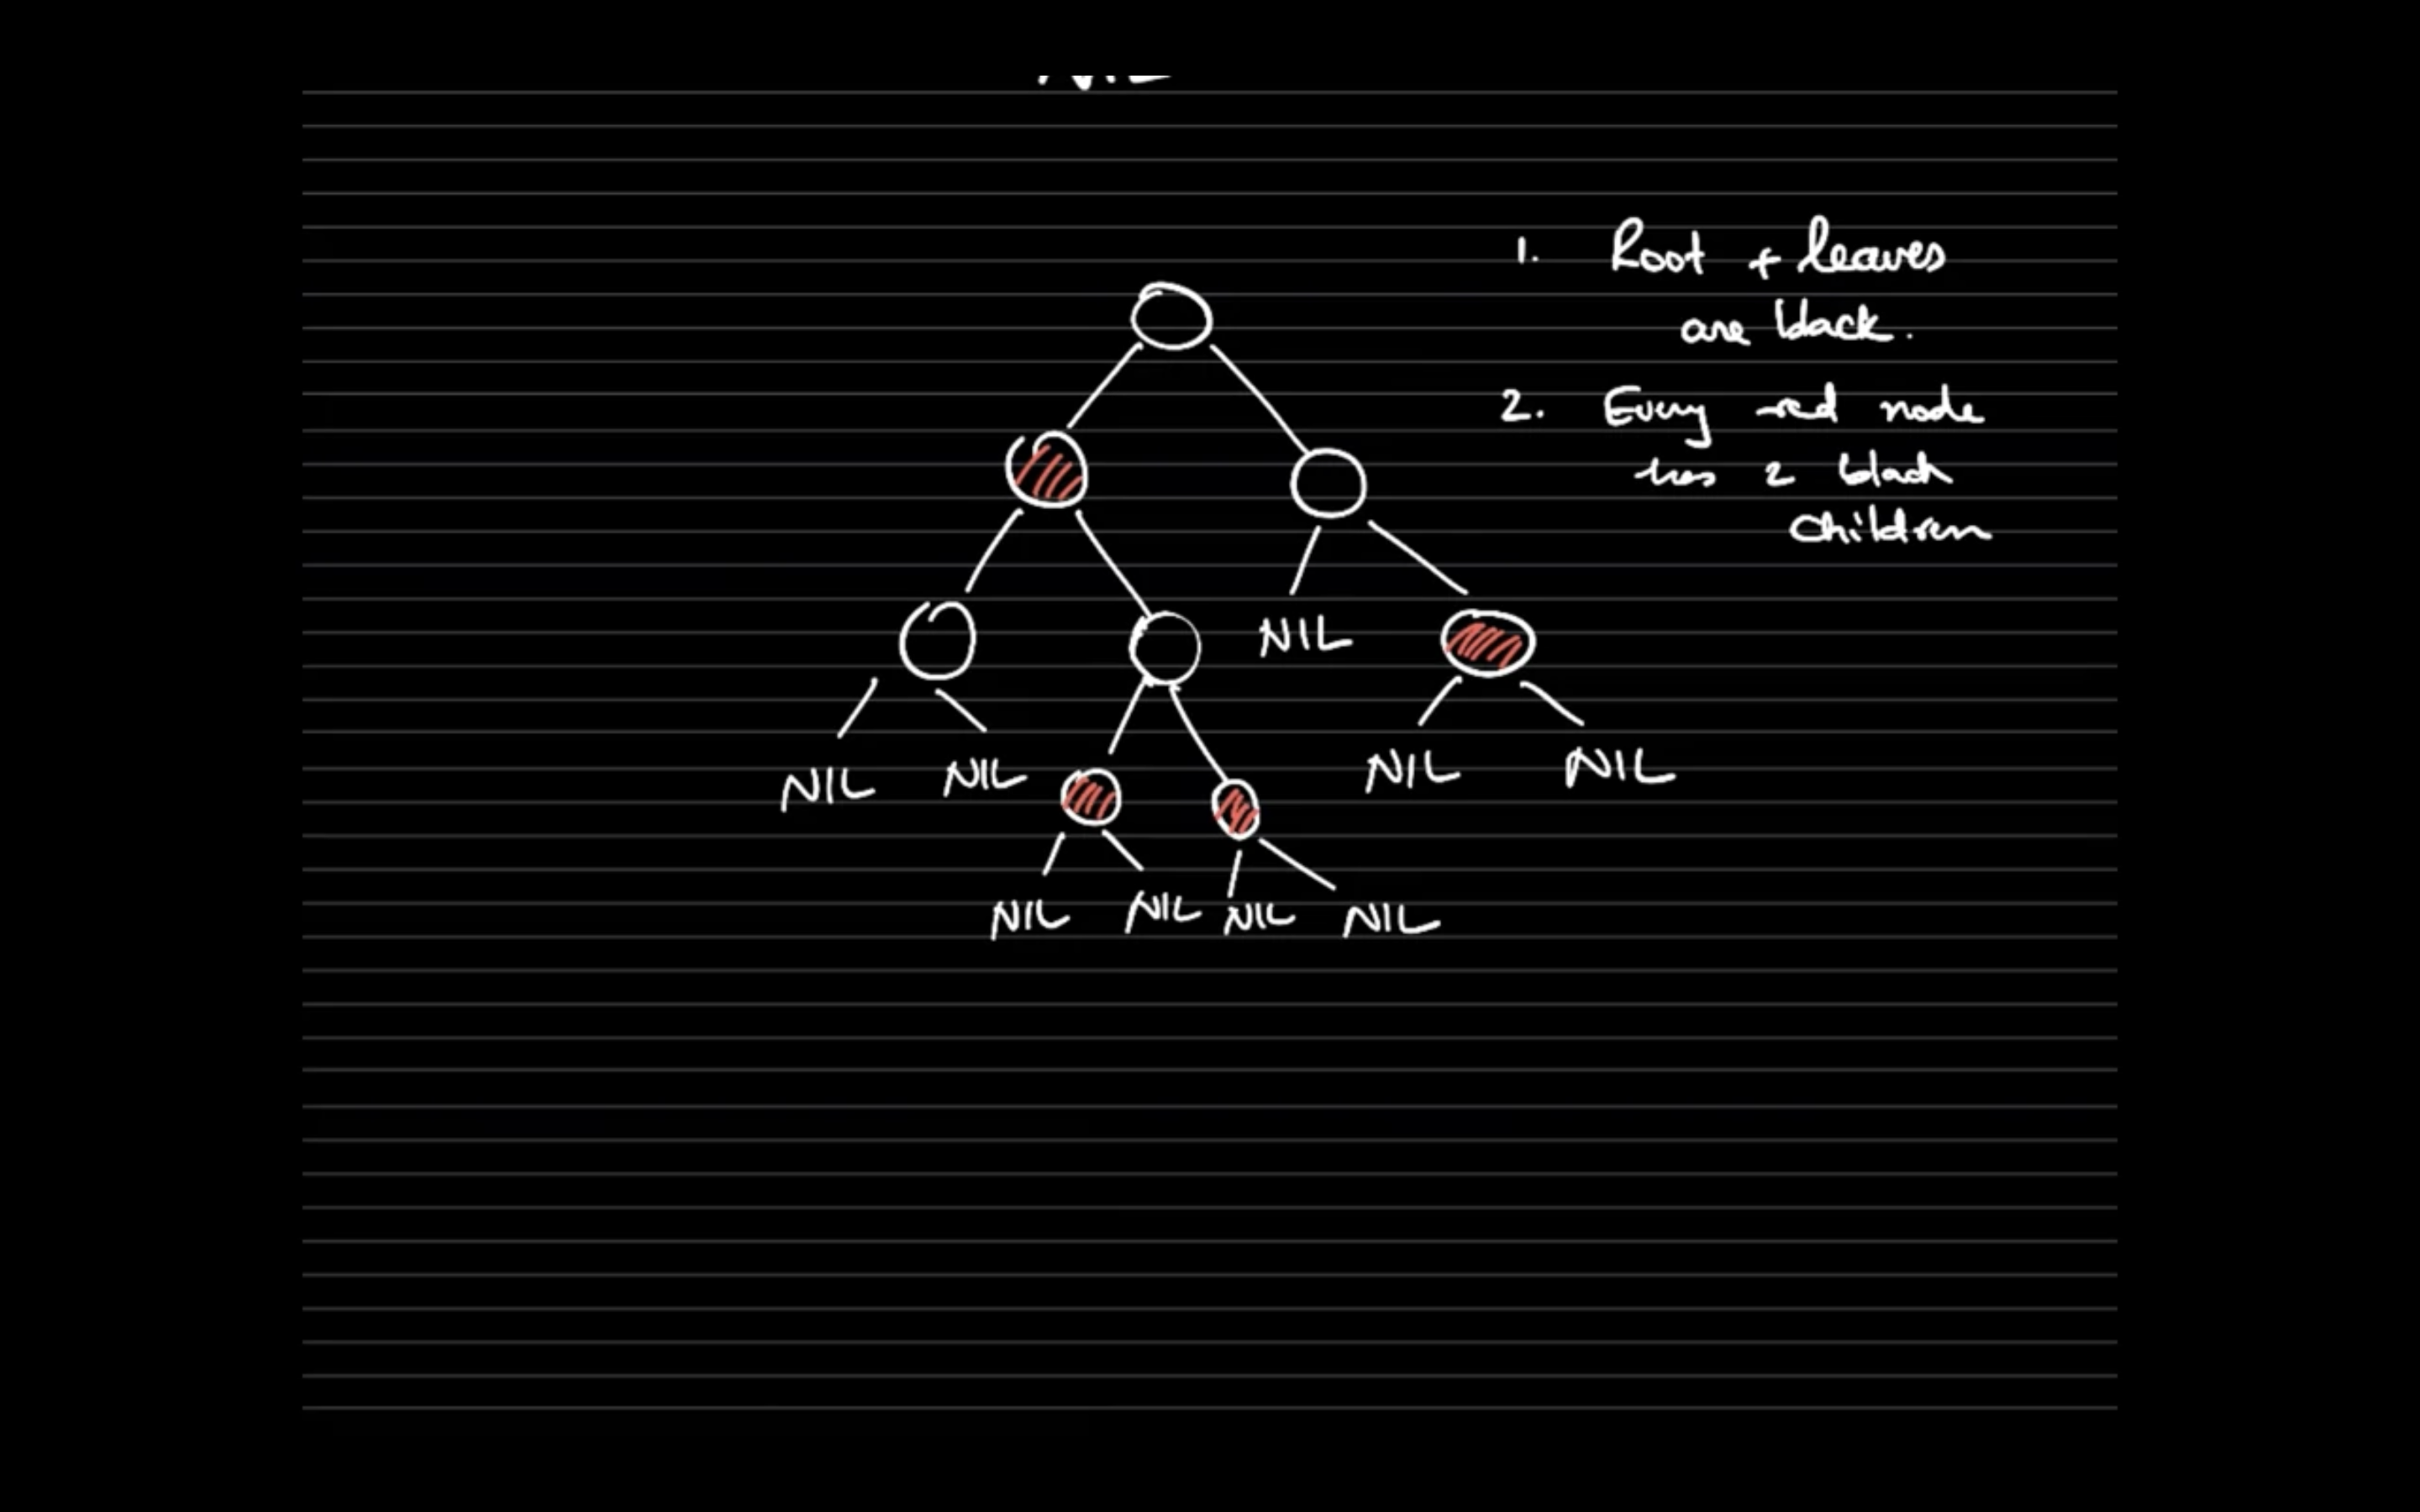 1. Root + leaves
are black.
2. Every red node
has 2 black
children
NIL
NIL
NIL
NIL
NIL
NIL
NIL
NIL
NIL